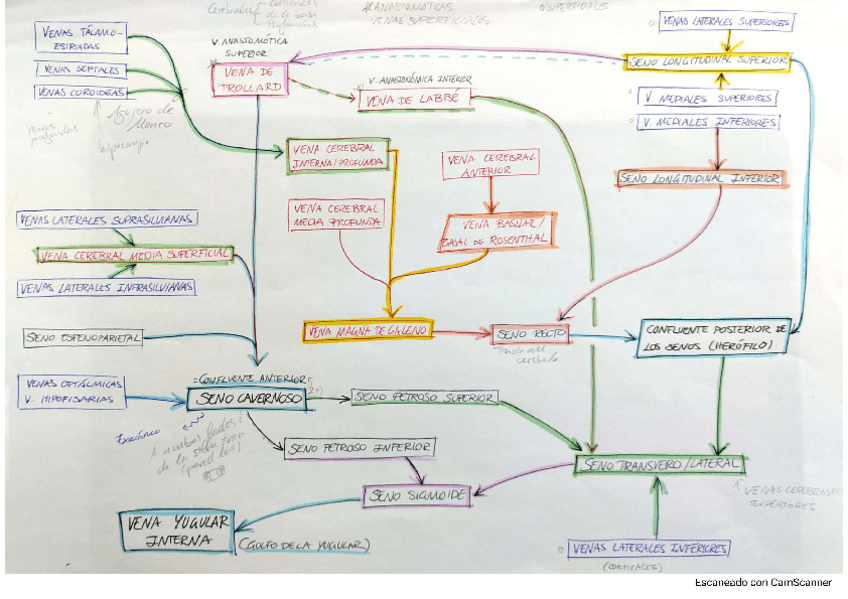 Cerebrales
Profundas
Anastomóticas
Venas superficiales
Superficiales
Venas laterales superiores
Venas tálamo-
estriadas
Venas septales
Venas coroideas
Agujero de
Monro
hipocampo
Venas
profundas
V. anastomótica
superior
Vena de
Trollard
V. anastomónica inferior
Vena de Labbé
Seno longitudinal superior
V. mediales superiores
V. mediales inferiores
Vena cerebral
interna/profunda
Vena cerebral
anterior
Seno longitudinal inferior
Vena cerebral
media profunda
Vena basilar/
basal de Rosenthal
Venas laterales suprasilvianas
Vena cerebral media superficial
Venas laterales infrasilvianas
Seno esfenoparietal
Vena magna de Galeno
Seno recto
Confluente posterior de
los senos (Herófilo)
Venas oftálmicas
V. hipofisarias
=Confluente anterior
Seno cavernoso
A ambos lados
de la silla turca
Seno petroso superior
Seno petroso inferior
Seno transvero/lateral
Venas cerebrales
superiores
Seno sigmoide
Vena yugular
interna
(Golfo de la yugular)
Venas laterales inferiores
(corticales)
Escaneado con CamScanner